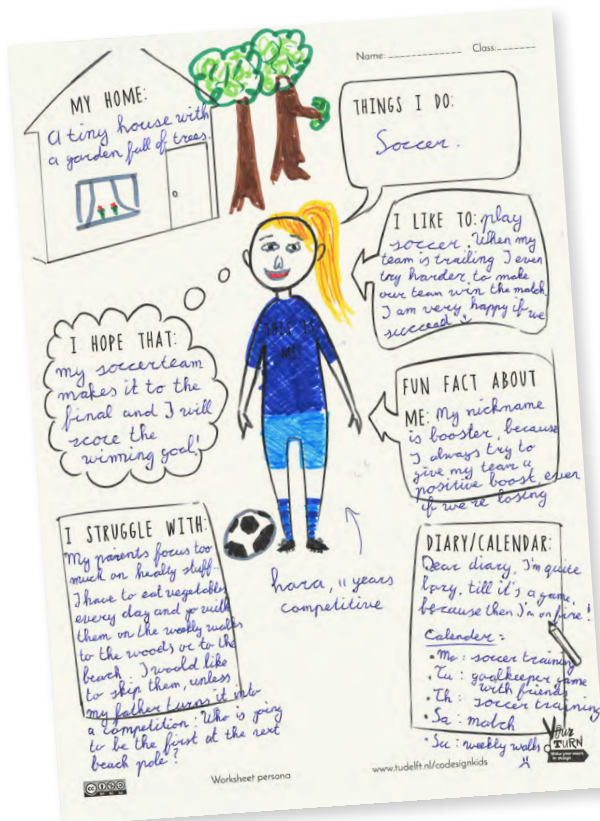 Name: Class:
MY HOME:
a tiny house with
a garden full of trees.
THINGS I DO:
Soccer.
I LIKE TO: play
soccer. When my
team is trailing I even
try harder to make
our team win the match.
I am very happy if we
succeed
THIS IS
ME!
I HOPE THAT:
my soccerteam
makes it to the
final and I will
score the
winning goal!
FUN FACT ABOUT
ME: My nickname
is booster, because
I always try to
give my team a
positive boost even
if we're losing
I STRUGGLE WITH:
My parents focus too
much on healty stuff.
I have to eat vegetables
every day and go with
them on the weekly walks
to the woods or to the
beach. I would like
to skip them, unless
my father turns it into
a competition: Who is going
to be the first at the next
beach pole?
hara, 11 years
competitive
DIARY/CALENDAR:
Dear diary, I'm quite
lazy, till it's a game,
because then I'm on fire!
Calender:
• Mo: soccer training
• Tu: goalkeeper game
with friends
• Th: soccer training
• Sa: match
• Su: weekly walks
YOUR
TURN
Worksheet persona
www.tudelft.nl/codesignkids